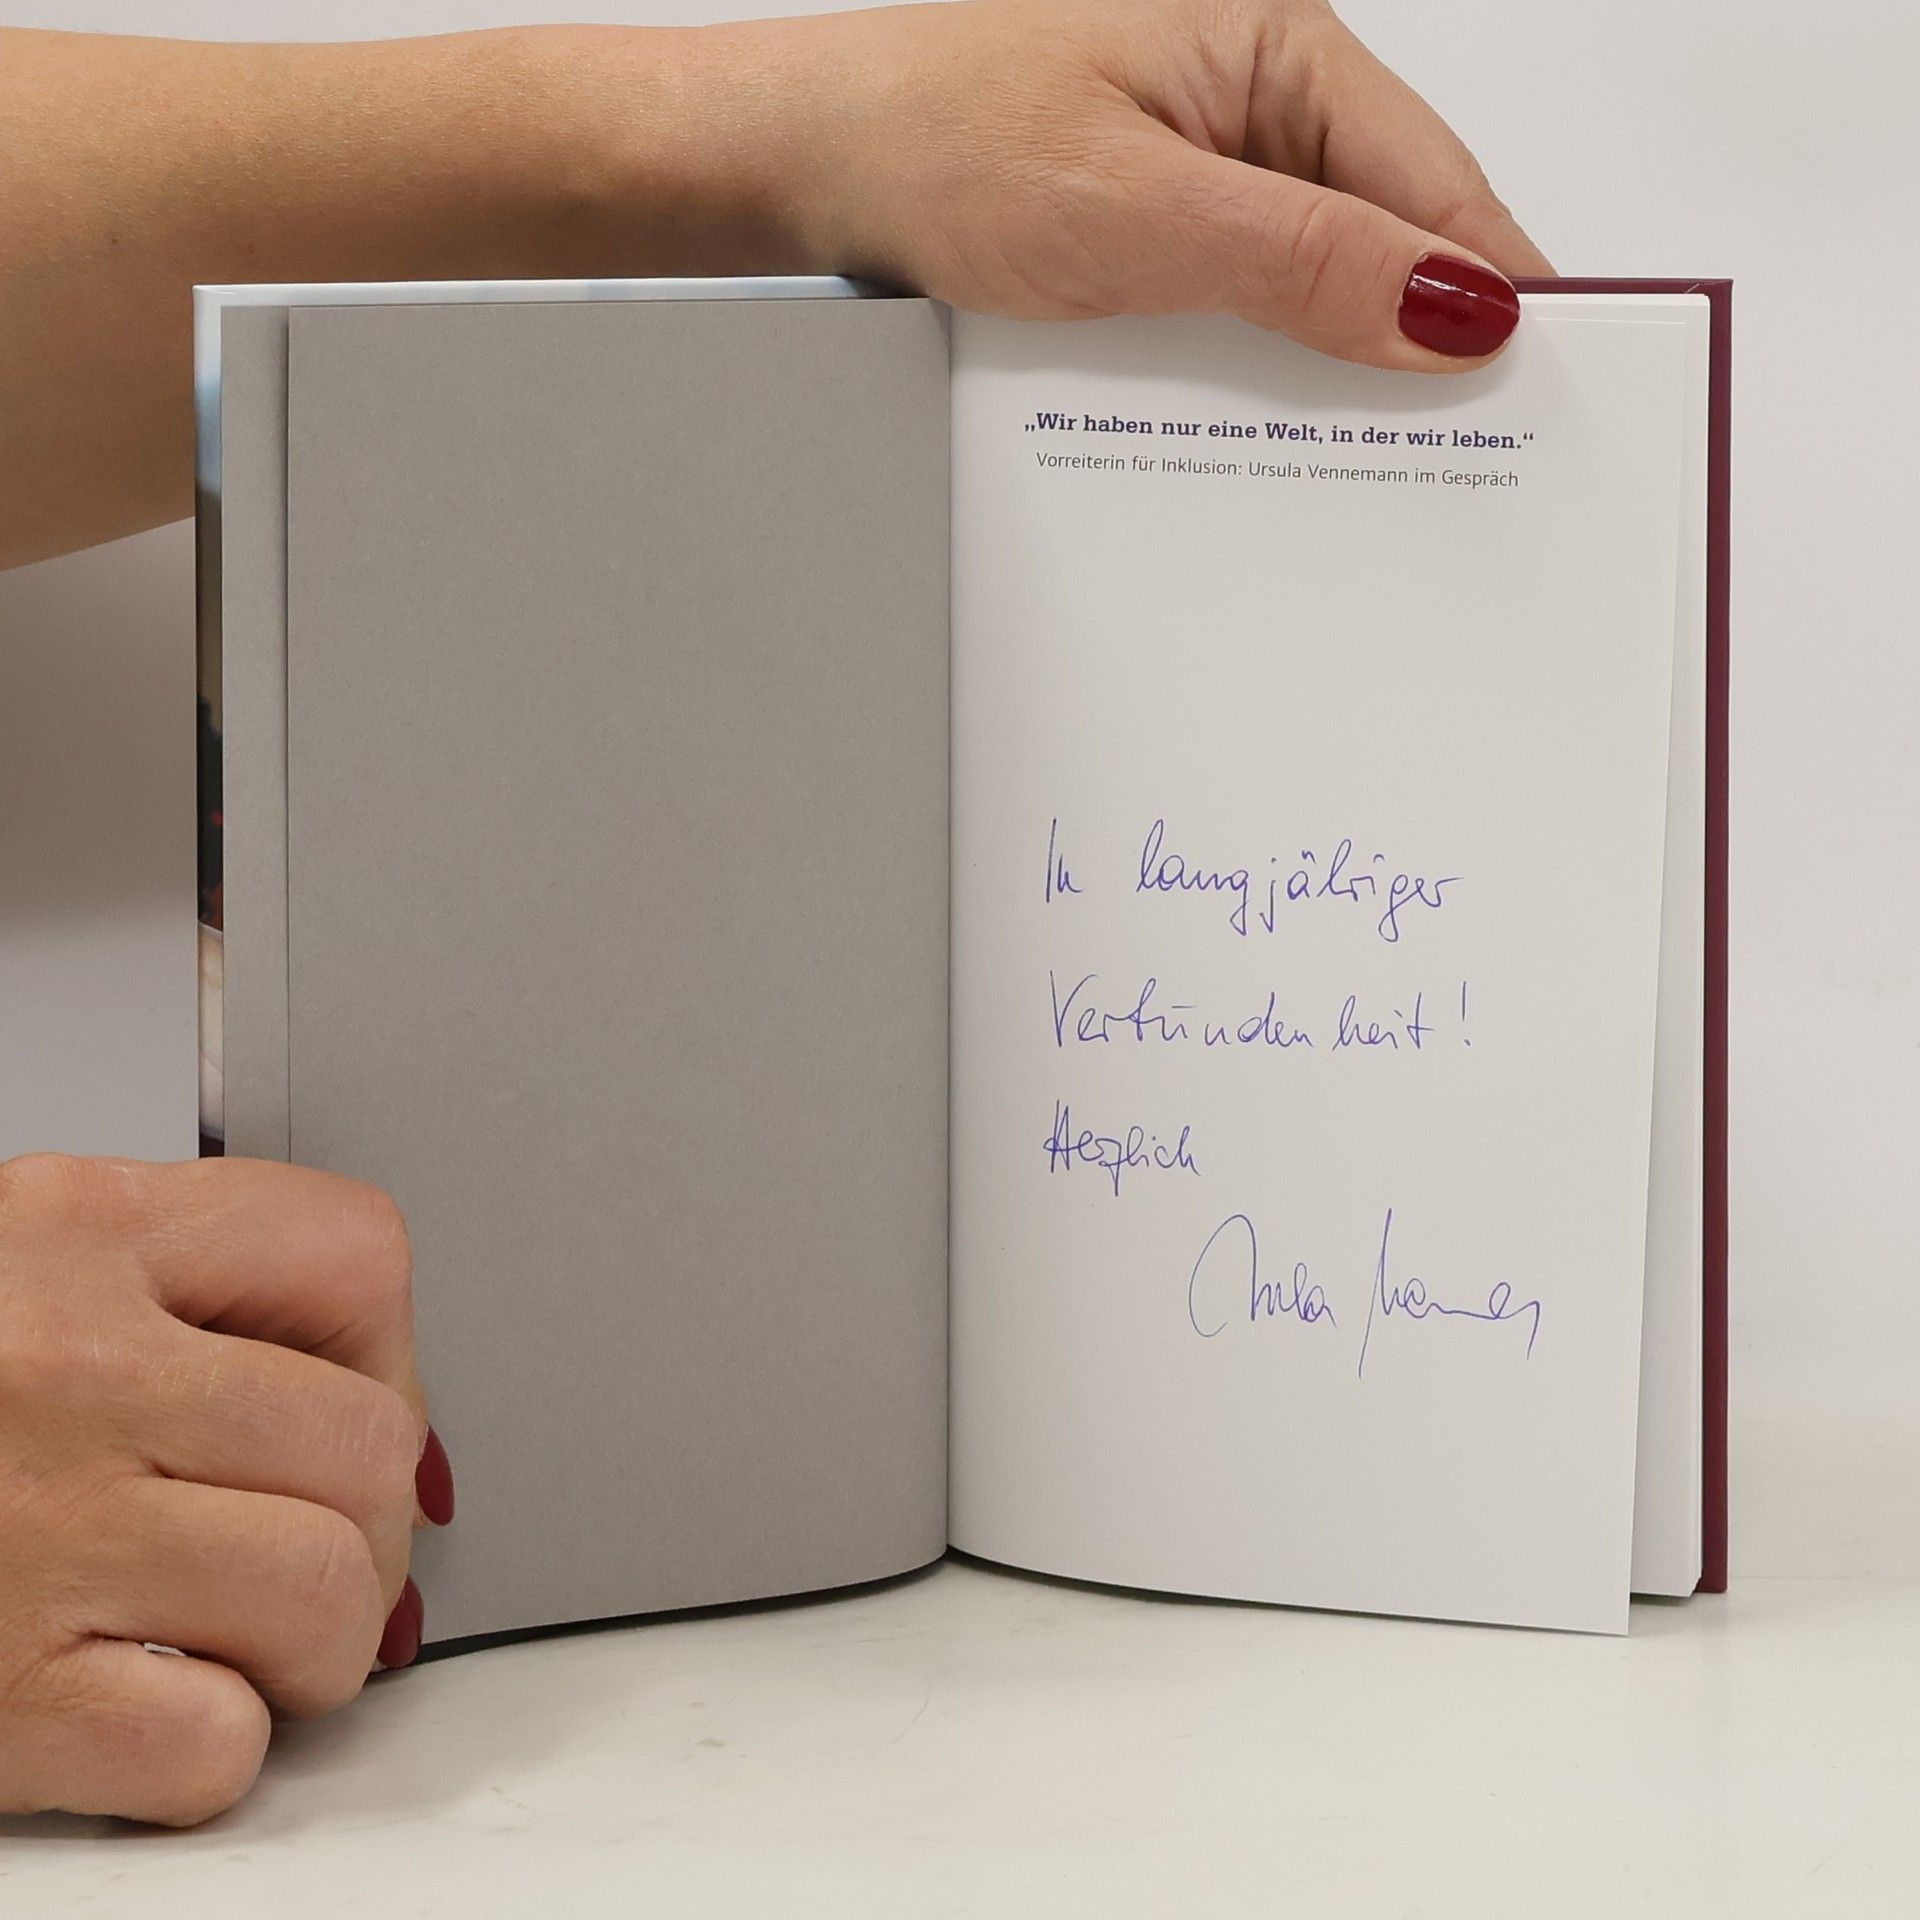 „Wir haben nur eine Welt, in der wir leben.“
Vorreiterin für Inklusion: Ursula Vennemann im Gespräch
In langjähriger
Verbundenheit!
Herzlich